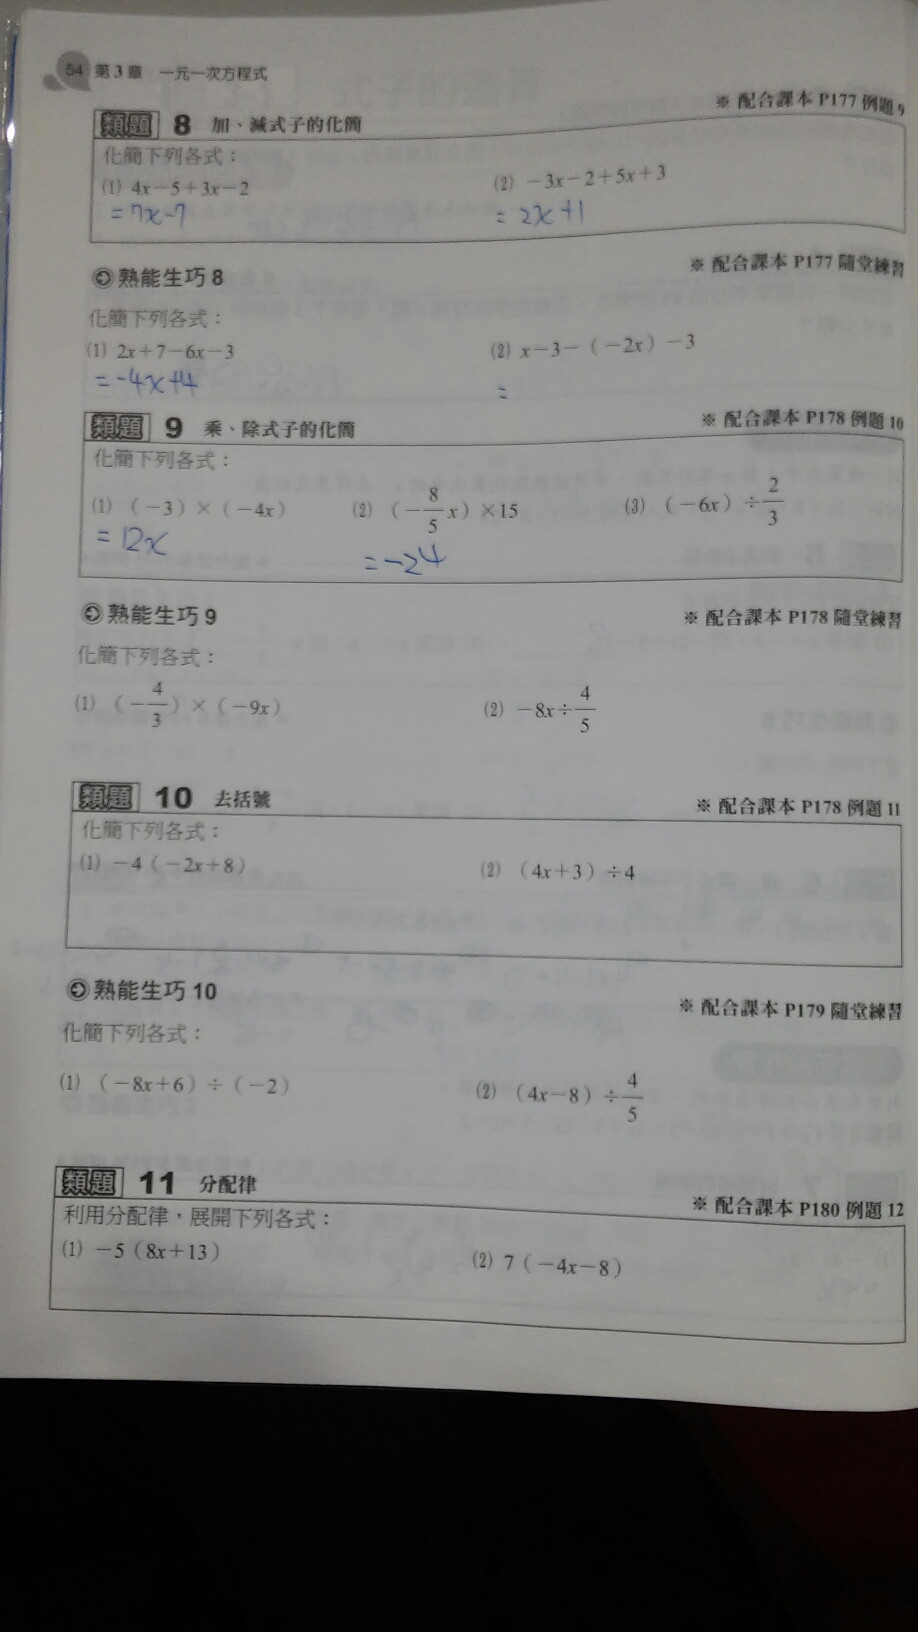 54 第3章 一元一次方程式
類題 8 加、減式子的化簡 ※ 配合課本 P177 例題 9
化簡下列各式：
(1) 4x－5＋3x－2 (2) －3x－2＋5x＋3
=7x-7 = 2x+1
熟能生巧 8 ※ 配合課本 P177 隨堂練習
化簡下列各式：
(1) 2x＋7－6x－3 (2) x－3－（－2x）－3
=-4x+4 =
類題 9 乘、除式子的化簡 ※ 配合課本 P178 例題 10
化簡下列各式：
(1) （－3）×（－4x） (2) （－8/5 x）×15 (3) （－6x）÷2/3
= 12x =-24
熟能生巧 9 ※ 配合課本 P178 隨堂練習
化簡下列各式：
(1) （－4/3）×（－9x） (2) －8x÷4/5
類題 10 去括號 ※ 配合課本 P178 例題 11
化簡下列各式：
(1) －4（－2x＋8） (2) （4x＋3）÷4
熟能生巧 10 ※ 配合課本 P179 隨堂練習
化簡下列各式：
(1) （－8x＋6）÷（－2） (2) （4x－8）÷4/5
類題 11 分配律 ※ 配合課本 P180 例題 12
利用分配律，展開下列各式：
(1) －5（8x＋13） (2) 7（－4x－8）